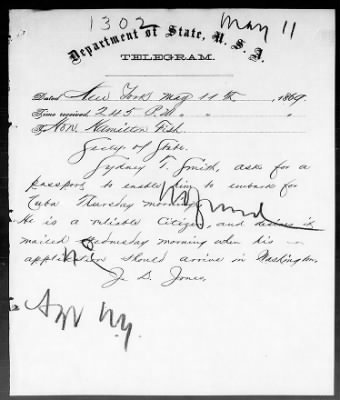 1302 May 11
Department of State, U.S.A.
TELEGRAM.
Dated New York May 11th, 1869.
Time received 2 45 P.M. " "
To Hon. Hamilton Fish
Secy of State.
Sydney T. Smith, asks for a
passport to enable him to embark for
Cuba Thursday morning.
He is a reliable Citizen, and desires it
mailed Wednesday morning when his
application should arrive in Washington.
Js. B. Jones.
N.Y.